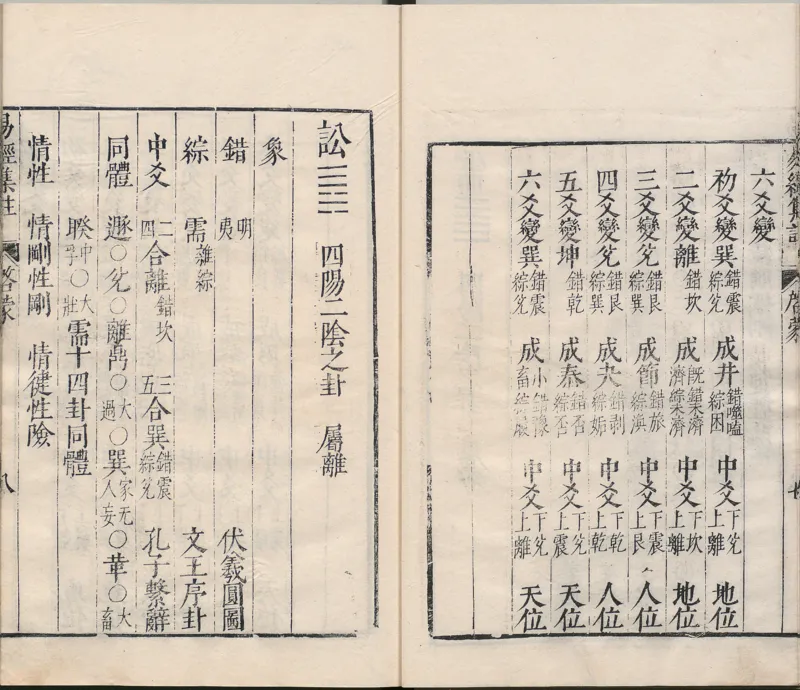 六爻變
初爻變巽錯震綜兌 成井錯噬嗑綜困 中爻下兌上離 地位
二爻變離錯坎 成既濟錯未濟綜未濟 中爻下坎上離 地位
三爻變兌錯艮綜巽 成節錯旅綜渙 中爻下震上艮 人位
四爻變兌錯艮綜巽 成夬錯剝綜姤 中爻下乾上乾 人位
五爻變坤錯乾 成泰錯否綜否 中爻下兌上震 天位
六爻變巽錯震綜兌 成小畜錯豫綜履 中爻下兌上離 天位
訟䷅ 四陽二陰之卦 屬離
象
錯 明夷 伏羲圓圖
綜 需雜綜 文王序卦
中爻 二四合離錯坎 三五合巽錯震綜兌 孔子繫辭
同體 遯○兌○離鼎○大過○巽家人无妄○革○大畜
睽中孚○大壯需十四卦同體
情性 情剛性剛 情健性險
易經集註 啓蒙 八